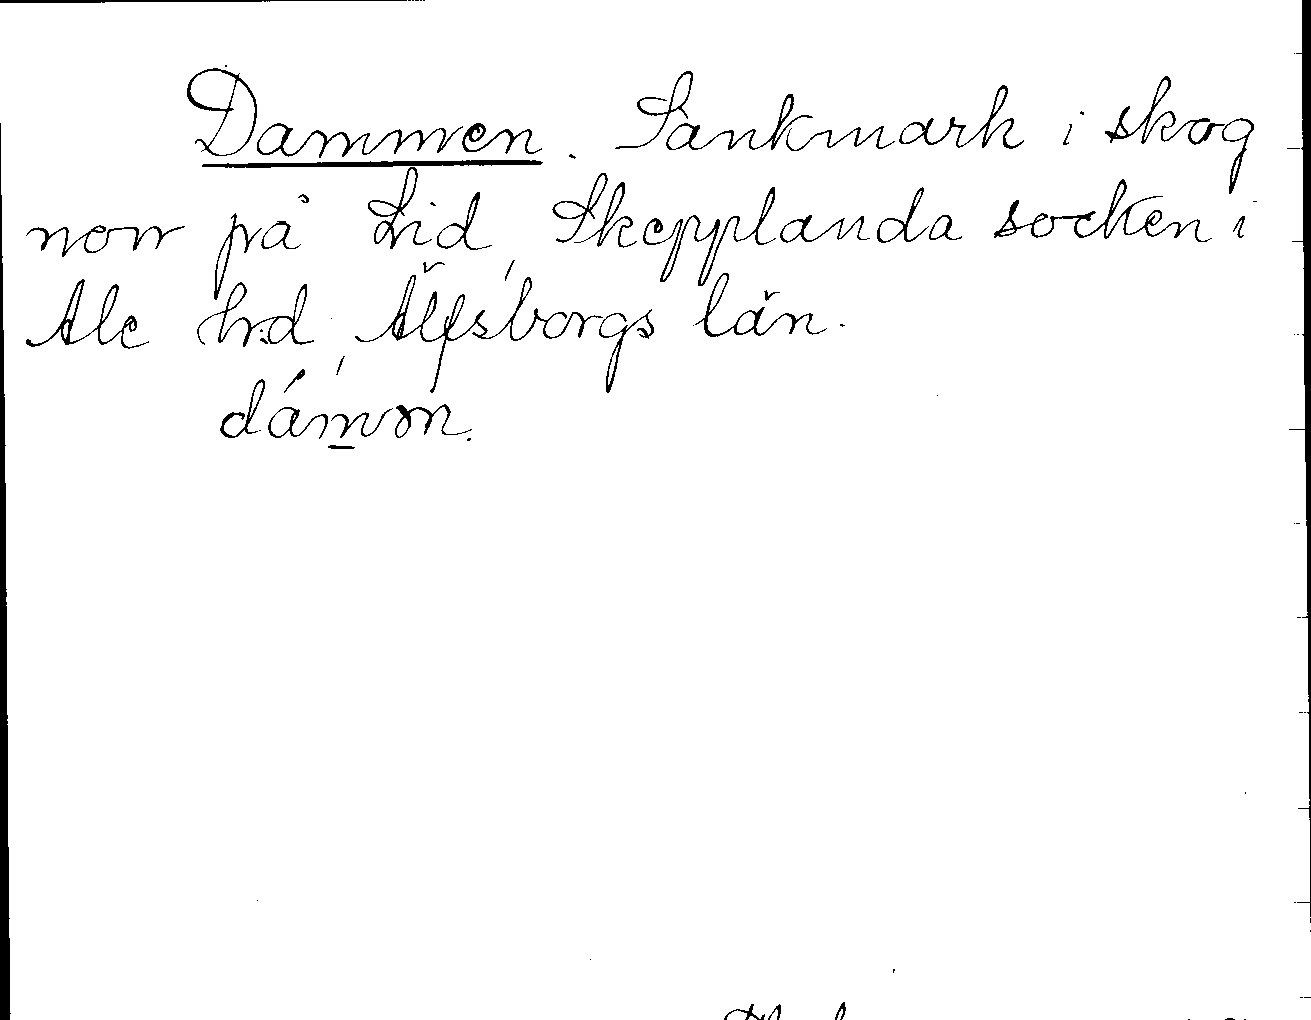 Dammen. Sankmark i skog
norr på Lid, Skepplanda socken i
Ale hrd, Älfsborgs län.
dám̲ən.